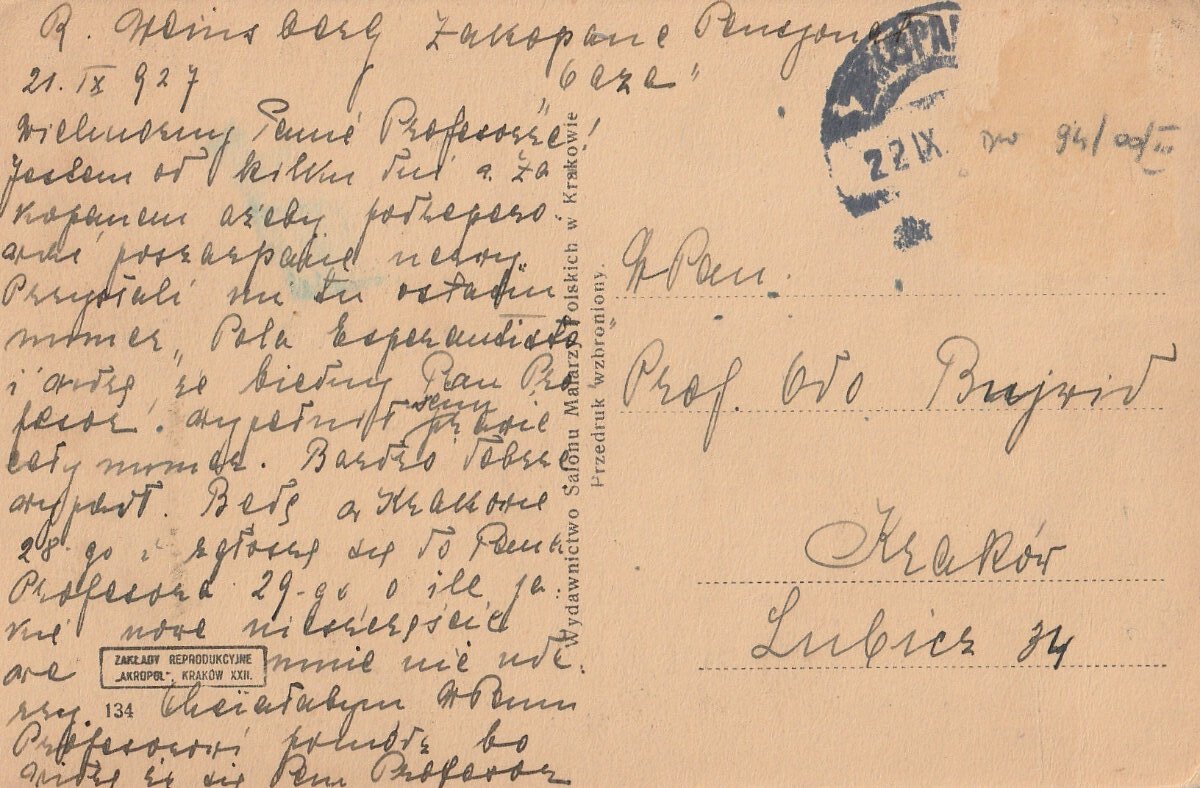 R. Weinsberg Zakopane Pensjonat
21. IX 927 "Oaza"
Wielmożny Panie Profesorze!
Jestem od kilku dni w Za
kopanem ażeby podreparo
wać poszarpane nerwy.
Przysłali mi tu ostatni
numer "Pola Esperantisto"
i widzę, że biedny Pan Pro
fesor wypełnił sam prawie
cały numer. Bardzo dobrze
wypadł. Będę w Krakowie
28-go i zgłoszę się do Pana
Profesora 29-go o ile ja
kie nowe nieszczęście
we mnie nie ude
rzy. Chciałabym WPanu
Profesorowi pomódz bo
widzę że się Pan Profesor
ZAKŁADY REPRODUKCYJNE
„AKROPOL”, KRAKÓW XXII.
134
Wydawnictwo Salonu Malarzy Polskich w Krakowie
Przedruk wzbroniony.
22 IX
WPan.
Prof. Odo Bujwid
Kraków
Lubicz 34